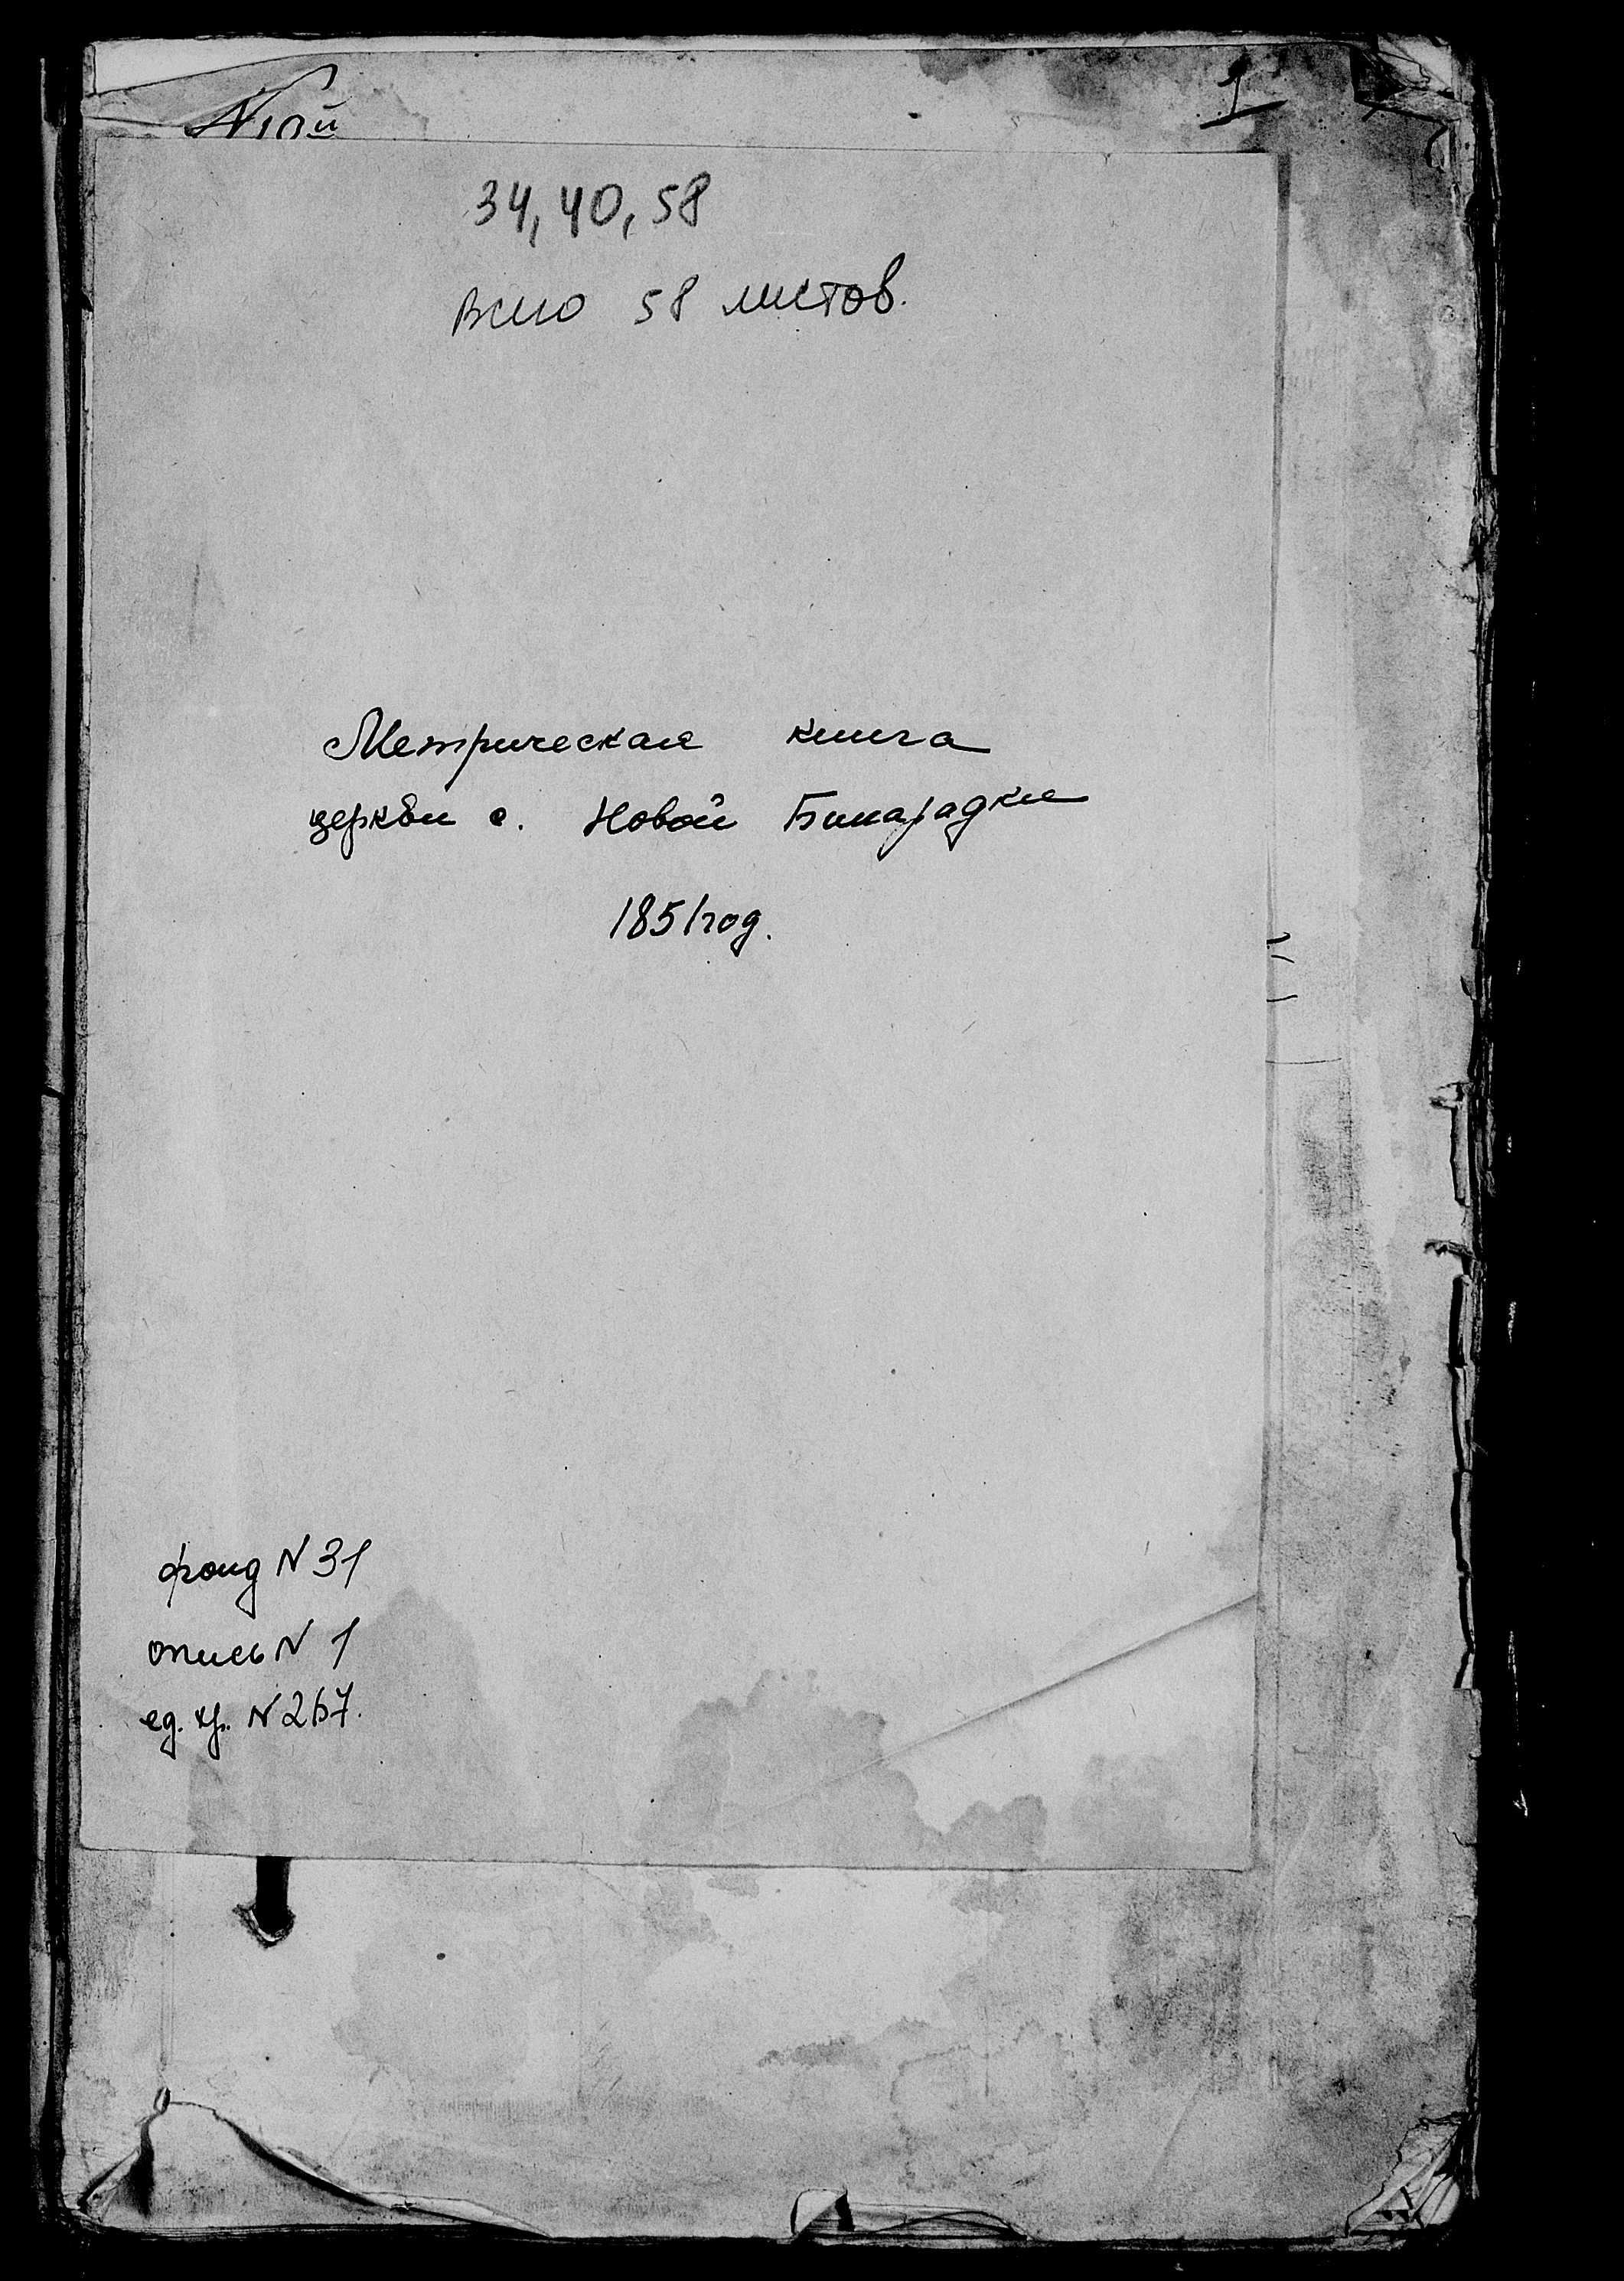 1
34, 40, 58
Всего 58 листов.
Метрическая книга
церкви с. Новой Бинарадки
1851 год.
фонд N 31
опись N 1
ед. хр. N 267.